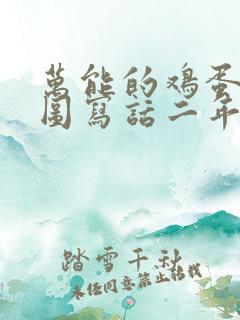 萬能的鸡蛋
圖寫話二年
踏雪千秋
未经同意禁止转载